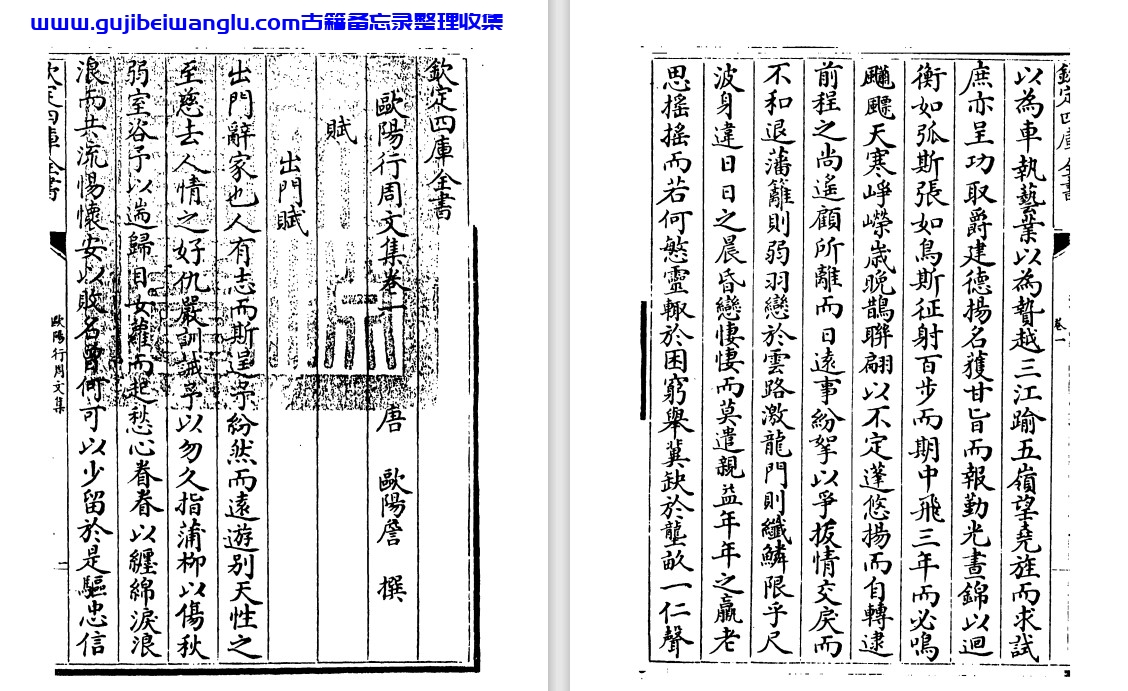 www.gujibeiwanglu.com古籍备忘录整理收集
欽定四庫全書
歐陽行周文集卷一
唐 歐陽詹 撰
賦
出門賦
出門辭家也人有志而斯逞予紛然而遠遊别天性之
至慈去人情之好仇嚴訓誡予以勿久指蒲柳以傷秋
弱室咨予以遄歸目女蘿而起愁心眷眷以纏綿淚浪
浪而共流惕懷安以敗名曾何可以少留於是驅忠信
欽定四庫全書
歐陽行周文集
一
欽定四庫全書
卷一
以為車執藝業以為贄越三江踰五嶺望堯旌而求試
庶亦呈功取爵建德揚名獲甘旨而報勤光晝錦以迴
衡如弧斯張如鳥斯征射百步而期中飛三年而必鳴
飃飃天寒崢嶸歲晚鵲聯翩以不定蓬悠揚而自轉逮
前程之尚遙顧所離而日遠事紛挐以爭扳情交戾而
不和退藩籬則弱羽戀於雲路激龍門則纖鱗限乎尺
波身違日日之晨昏戀悽悽而莫遣親益年年之羸老
思搖搖而若何慜靈輒於困窮舉冀缺於壟畝一仁聲